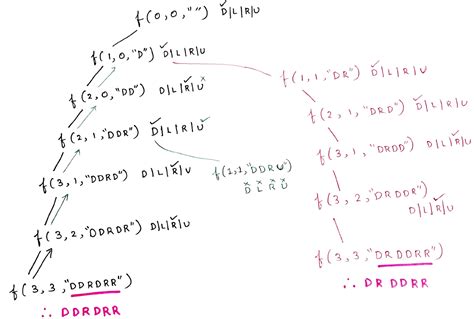 f(0,0,"") D|L|R|U
f(1,0,"D") D|L|R|U
f(2,0,"DD") D|L|R|U
f(2,1,"DDR") D|L|R|U
f(3,1,"DDRD") D|L|R|U
f(3,2,"DDRDR") D|L|R|U
f(3,3,"DDRDRR")
∴ DDRDRR
D L R U
f(1,1,"DR") D|L|R|U
f(2,1,"DRD") D|L|R|U
f(3,1,"DRDD") D|L|R|U
f(3,2,"DRDDR")
D|L|R|U
f(3,3,"DRDDRR")
∴ DRDDRR